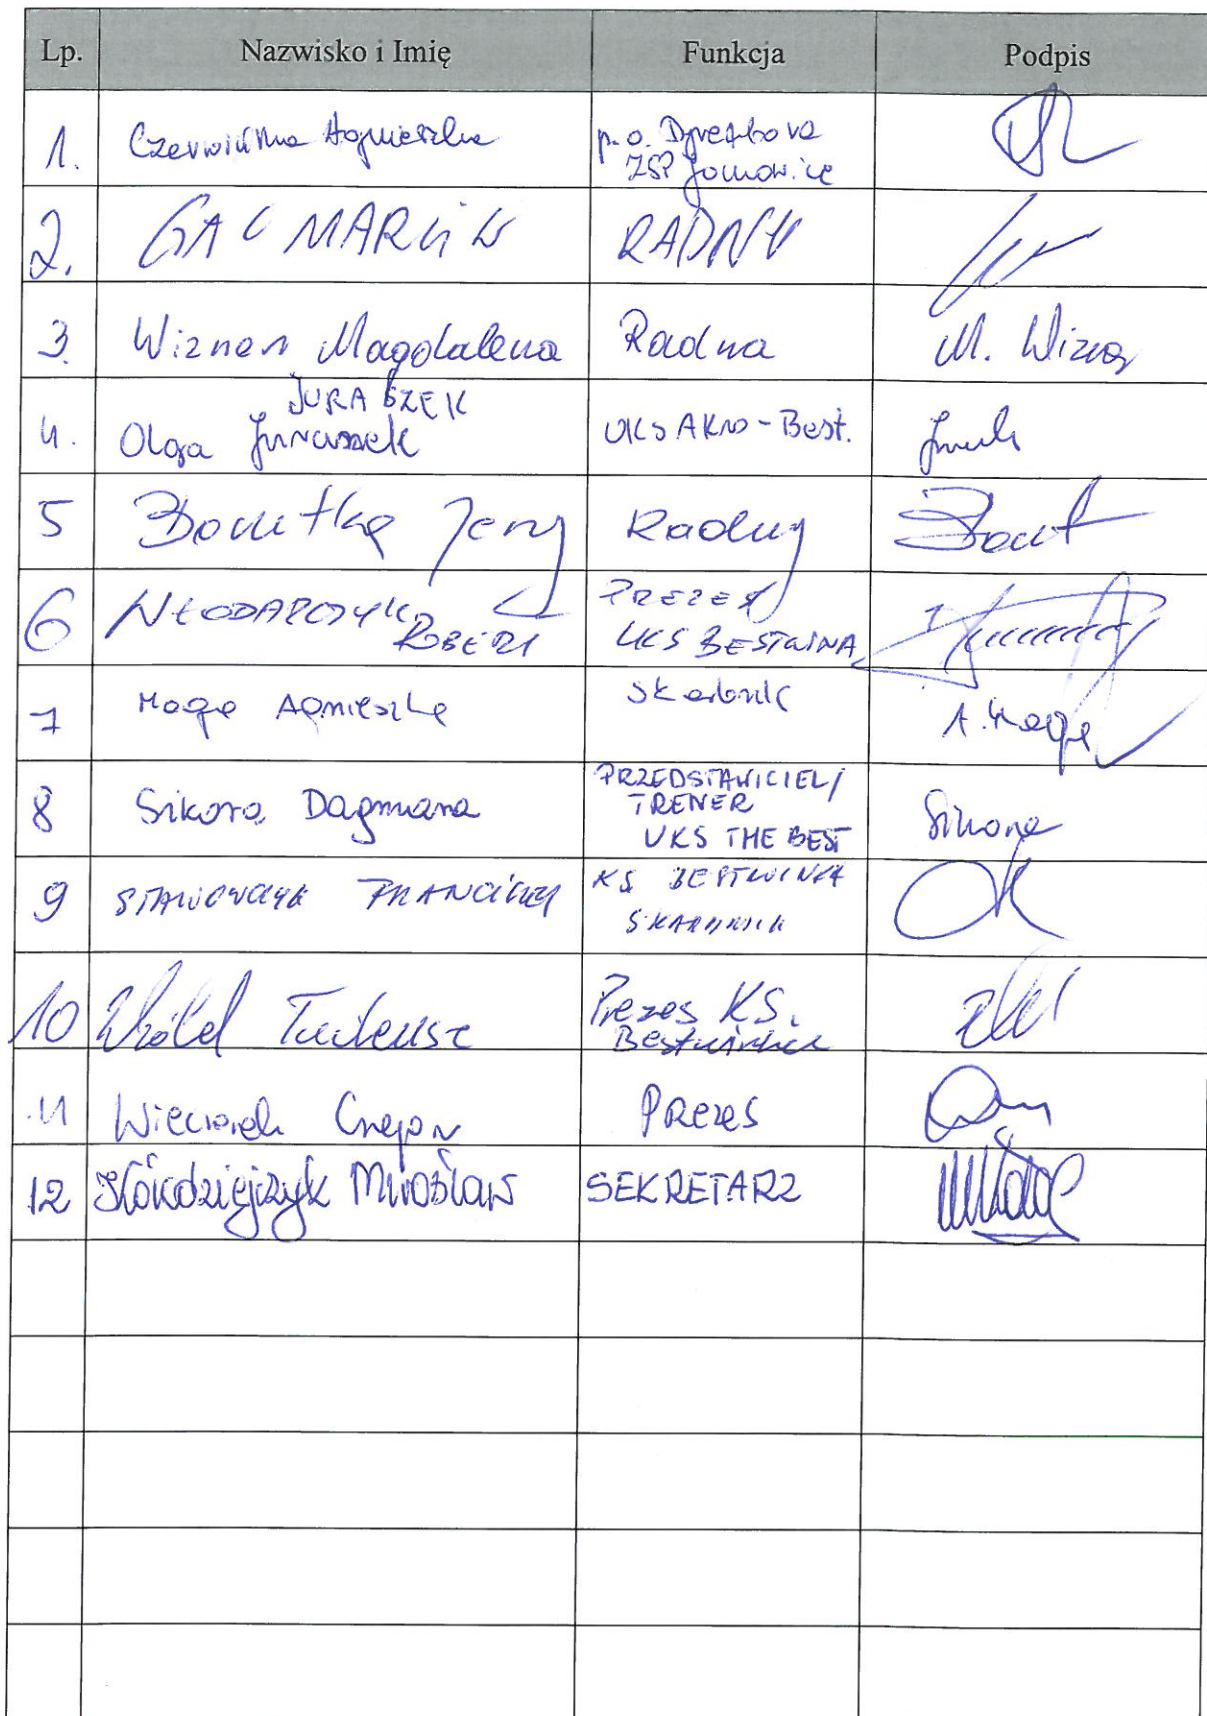 Lp. Nazwisko i Imię Funkcja Podpis
1. Czerwińska Agnieszka p.o. Dyrektora
ZSP Janowice
2. GAC MARCIN RADNY
3. Wizner Magdalena Radna M. Wizner
JURASZEK
4. Olga Juraszek UKS AKRO-Best.
5 Borutka Jerzy Radny
6 WŁODARCZYK PREZES
ROBERT UKS BESTWINA
7 Maga Agnieszka Skarbnik A. Maga
PRZEDSTAWICIEL/
8 Sikora Dagmara TRENER Sikora
UKS THE BEST
9 STAWOWCZYK FRANCISZEK KS BESTWINKA
SKARBNIK
10 Wróbel Tadeusz Prezes KS.
Bestwinka
11 Wieczorek Prezes
12 Kołodziejczyk Mirosław SEKRETARZ